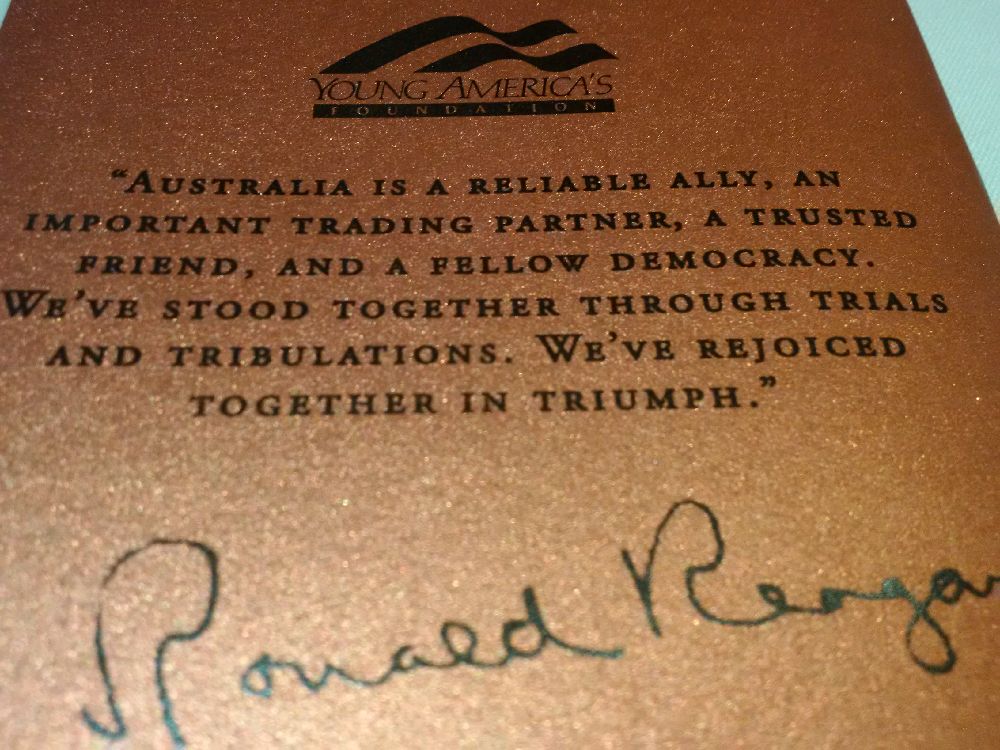 YOUNG AMERICA'S
FOUNDATION
"AUSTRALIA IS A RELIABLE ALLY, AN
IMPORTANT TRADING PARTNER, A TRUSTED
FRIEND, AND A FELLOW DEMOCRACY.
WE'VE STOOD TOGETHER THROUGH TRIALS
AND TRIBULATIONS. WE'VE REJOICED
TOGETHER IN TRIUMPH."
Ronald Reagan